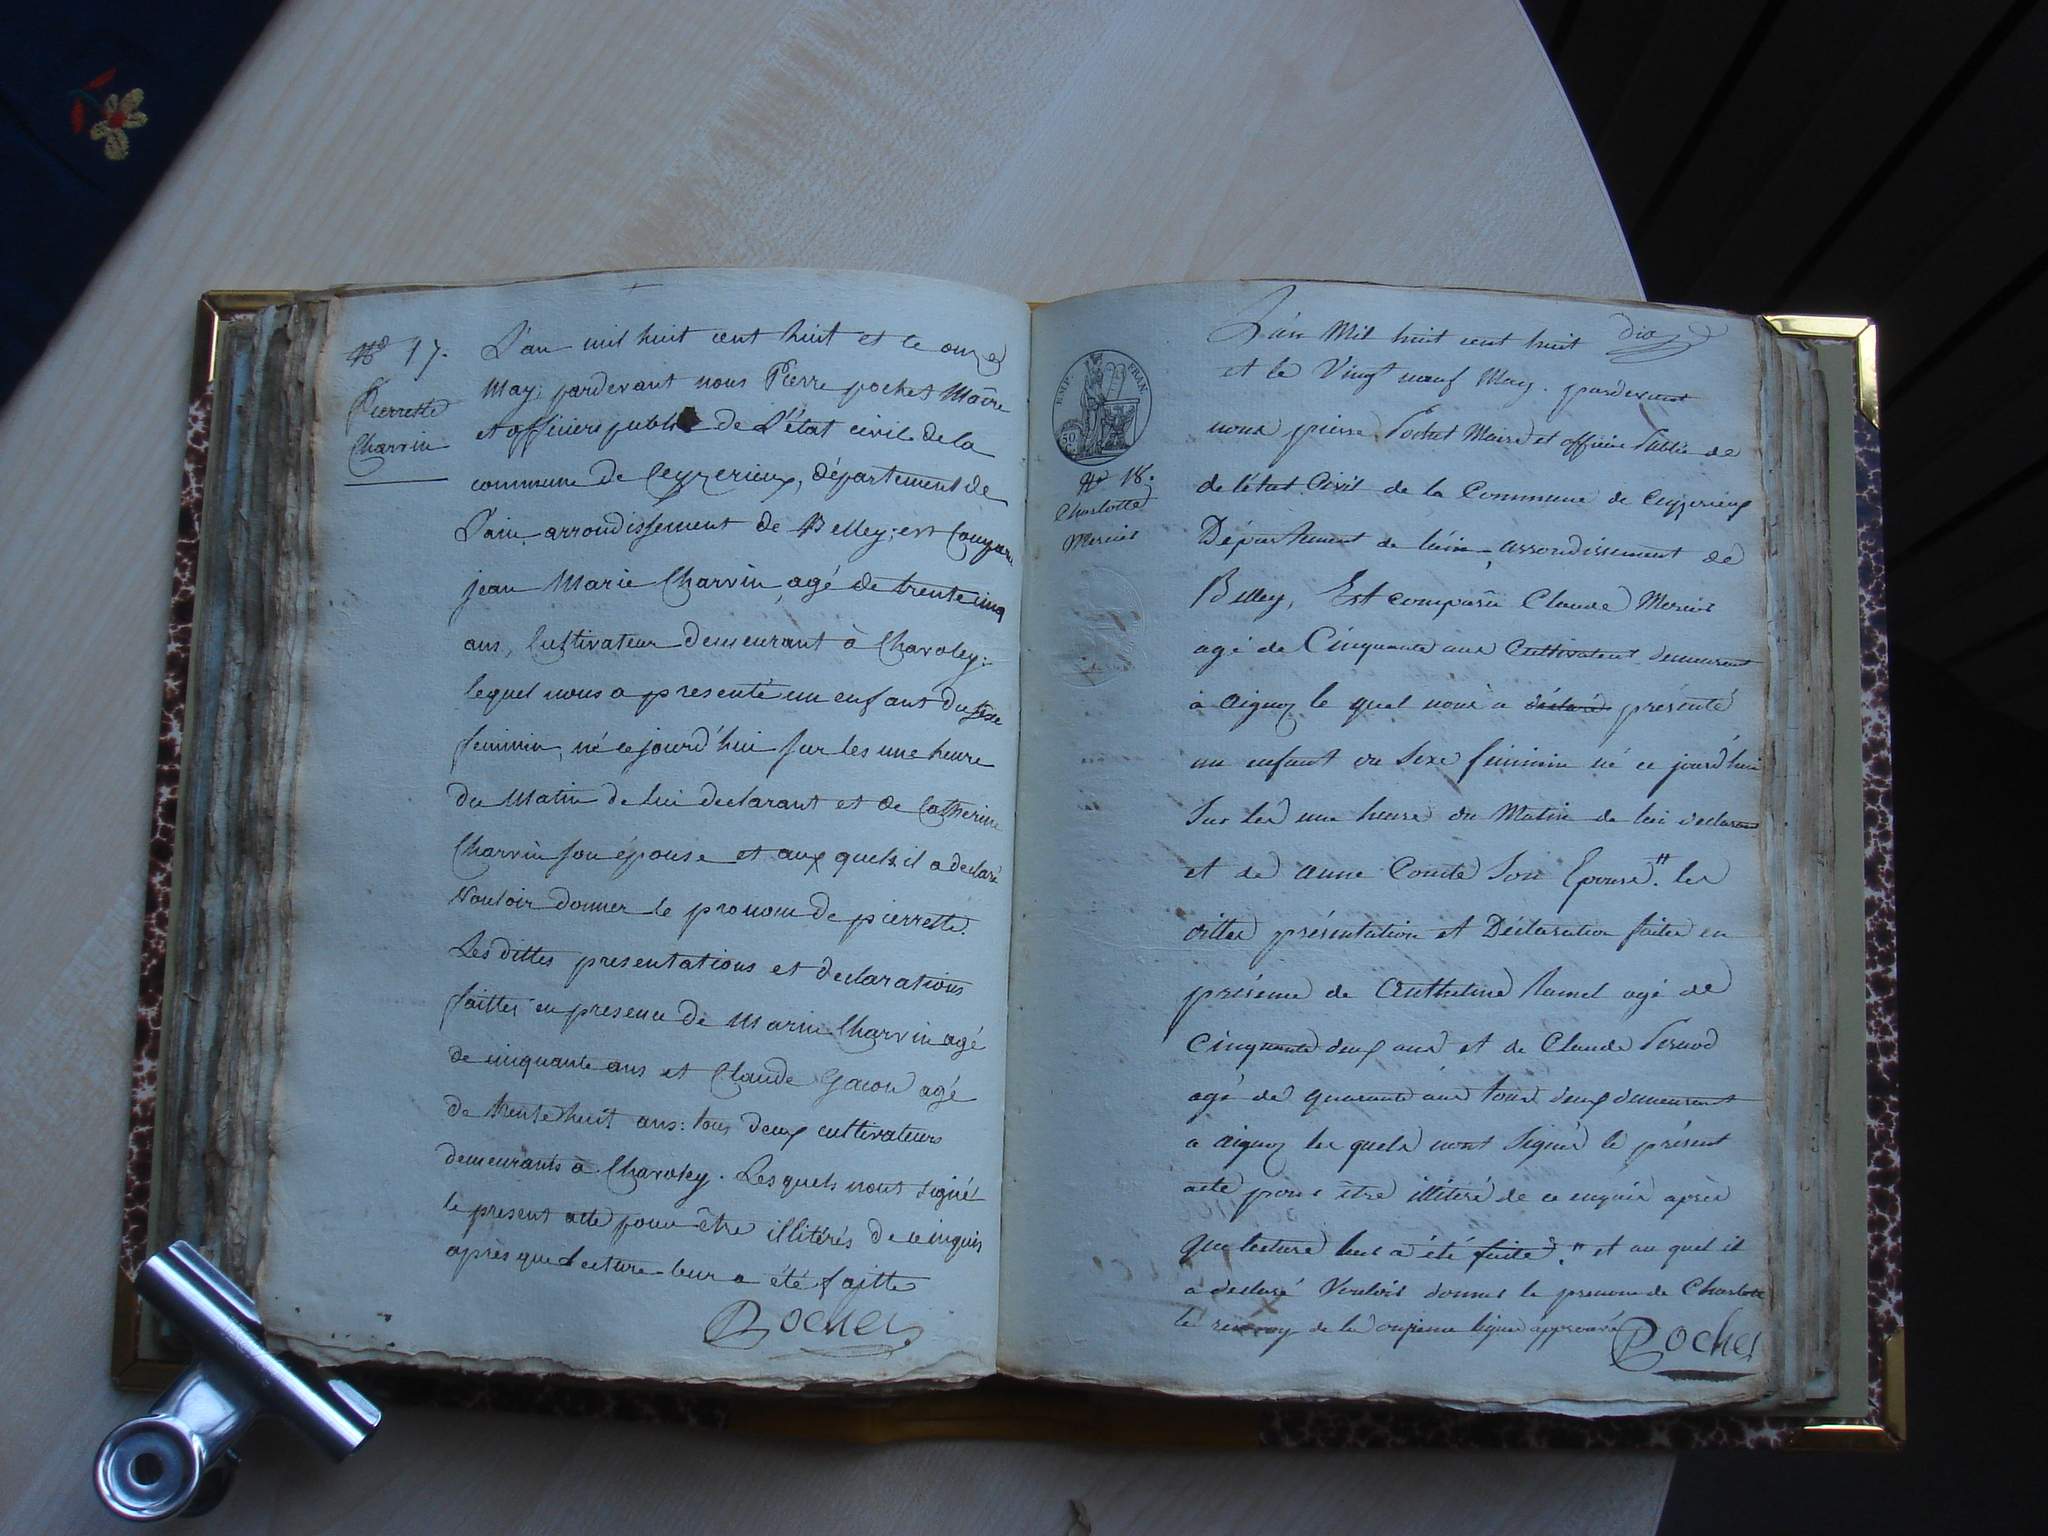 No 17.
Pierrette
Charvin
L'an mil huit cent huit et le onze
May; pardevant nous Pierre pochet Maire
et officiers public de L'état civil de la
commune de Ceyzerieux, département de
L'ain arrondissement de Belley; est Comparu
jean Marie Charvin, agé de trente cinq
ans, Cultivateur demeurant à Chavoley;
lequel nous a presenté un enfant du sexe
feminin, né cejourd'hui sur les une heure
du Matin de lui declarant et de Catherine
Charvin son épouse et aux quels il a declaré
Vouloir donner le pronom de pierrette.
Les dittes presentations et declarations
faittes en presence de Marin Charvin agé
de cinquante ans et Claude Gacon agé
de trente huit ans: tous deux cultivateurs
demeurants à Chavoley. Lesquels n'ont signé
le present acte pour être illitérés de ce inquis
après que Lecture leur a été faitte
Pochet
EMP. FRAN.
50
No 18.
Charlotte
Mercier
L'an Mil huit cent huit
et le Vingt neuf May. pardevant
nous pierre Pochet Maire et officier Public de
de l'état Civil de la Commune de Ceyzerieux
Département de l'ain, arrondissement de
Belley, Est comparu Claude Mercier
agé de Cinquante ans Cultivateur demeurant
à aignoz le quel nous a déclaré présenté
un enfant du Sexe féminin né ce jourd'hui
Sur les une heure du Matin de lui declarant
et de anne Comte Son Epouse." les
dittes présentation et Déclaration faites en
présence de Anthelme Ramel agé de
Cinquante deux ans et de Claude Pernod
agé de quarante ans tous deux demeurant
a aignoz les quels n'ont Signés le présent
acte pour être illiteré de ce enquis après
que lecture leur a été faite." et au quel il
a declaré Vouloir donner le prenom de Charlotte
le renvoy de la onzieme ligne approuvé
Pochet